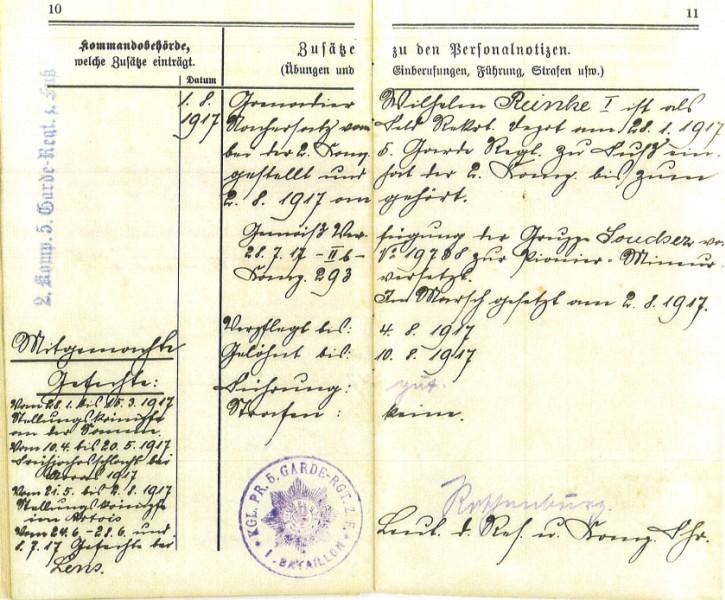 10
11
Kommandobehörde,
welche Zusätze einträgt.
Datum
Zusätze zu den Personalnotizen.
(Übungen und Einberufungen, Führung, Strafen usw.)
2. Komp. 5. Garde-Regt. z. Fuß
1. 8. Grenadier Wilhelm Reinke I ist als
1917 Nachersatz vom Feld Rekrt. Depot am 28. 1. 1917
bei der 2. Komp. 5. Garde Regt. zu Fuß ein-
gestellt und hat der 2. Komp. bis zum
2. 8. 1917 an gehört.
Gemäß Ver- fügung der Gruppe
28. 7. 17 - II b - No 19788 zur Pionier-Mineur-
Komp. 293 versetzt.
In Marsch gesetzt am 2. 8. 1917.
Verpflegt bis: 4. 8. 1917
Gelöhnt bis: 10. 8. 1917
Führung: gut.
Strafen: keine.
Mitgemachte
Gefechte:
Vom 28. 1. bis 3. 1917
Stellungskämpfe
an der Somme.
Vom 10. 4. bis 20. 5. 1917
Frühjahrsschlacht bei
Arras 1917
Vom 21. 5. bis 2. 8. 1917
Stellungskämpfe
im Artois
Vom 24. 6. - 28. 6. und
1. 7. 17 Gefechte bei
Lens.
KGL. PR. 5. GARDE-RGT. Z. F.
I. BATAILLON
Leut. d. Res. u. Komp. Fhr.